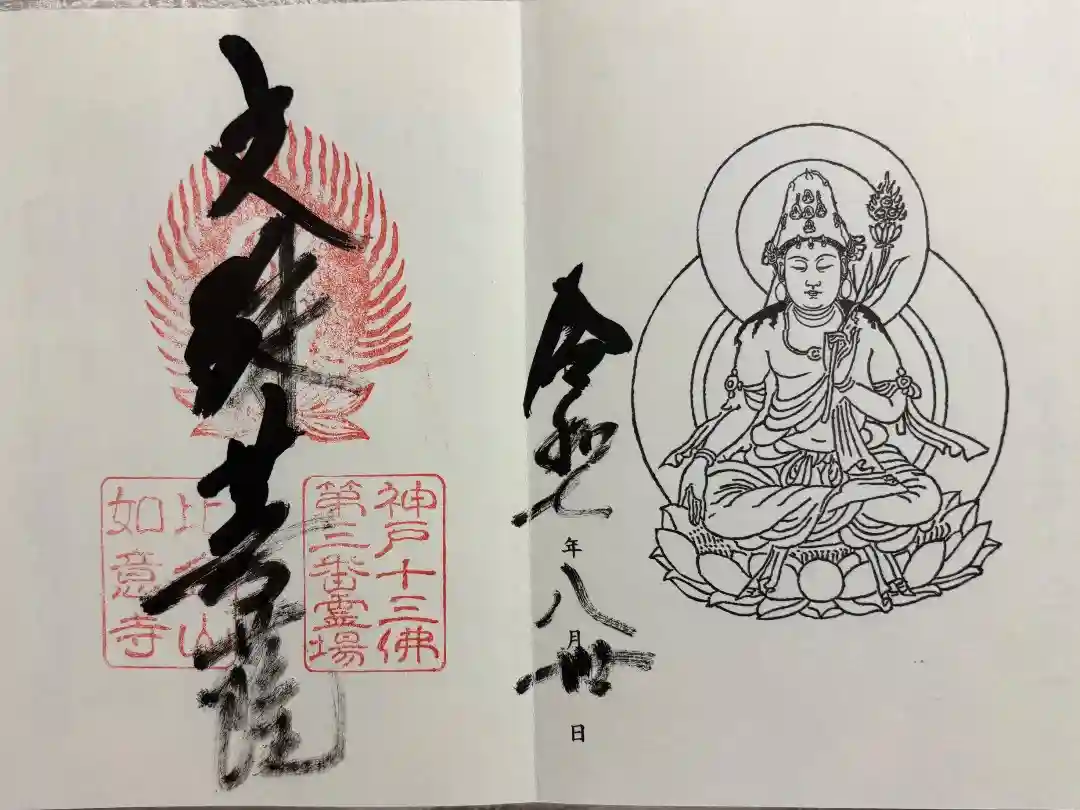 令和七年八月廿日
神戸十三佛
第三番霊場
文殊菩薩
比金山
如意寺